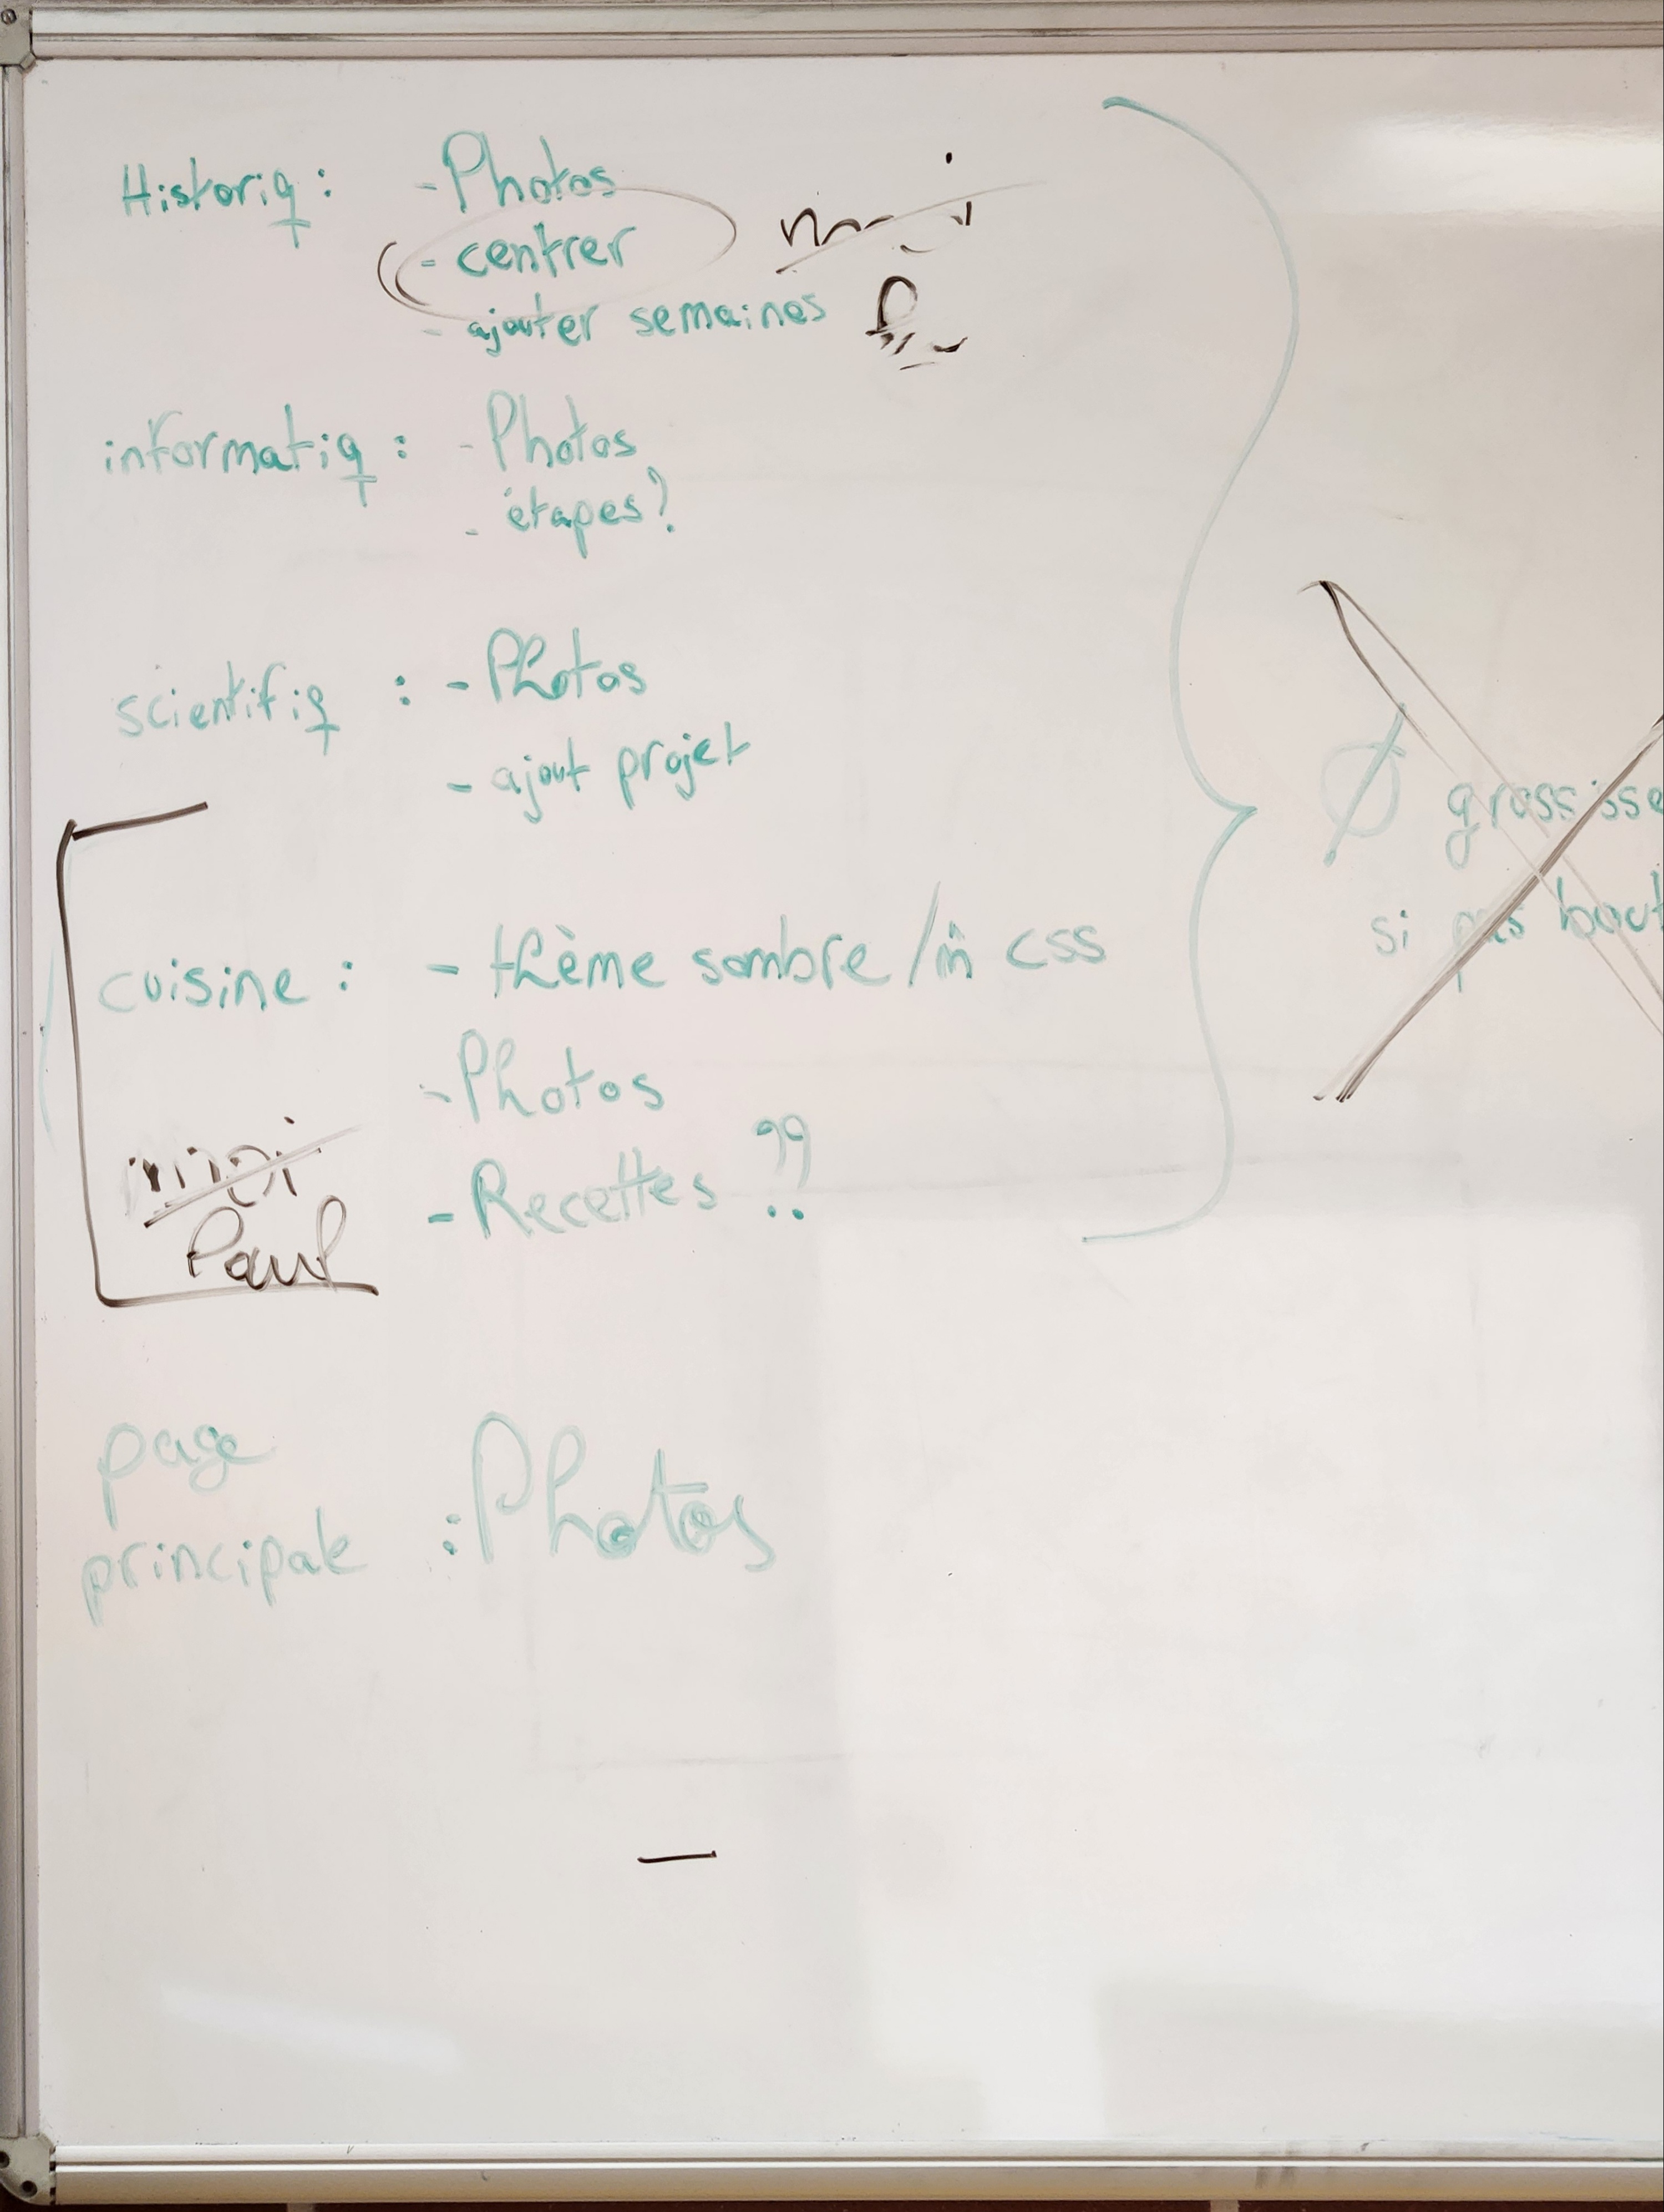 Historiq : - Photos
- centrer
- ajouter semaines
informatiq : - Photos
- étapes?
scientifiq : - Photos
- ajout projet
cuisine : - thème sombre / m̂ css
- Photos
- Recettes ??
moi
Paul
page
principale : Photos
Ø grossisse
si pas bout